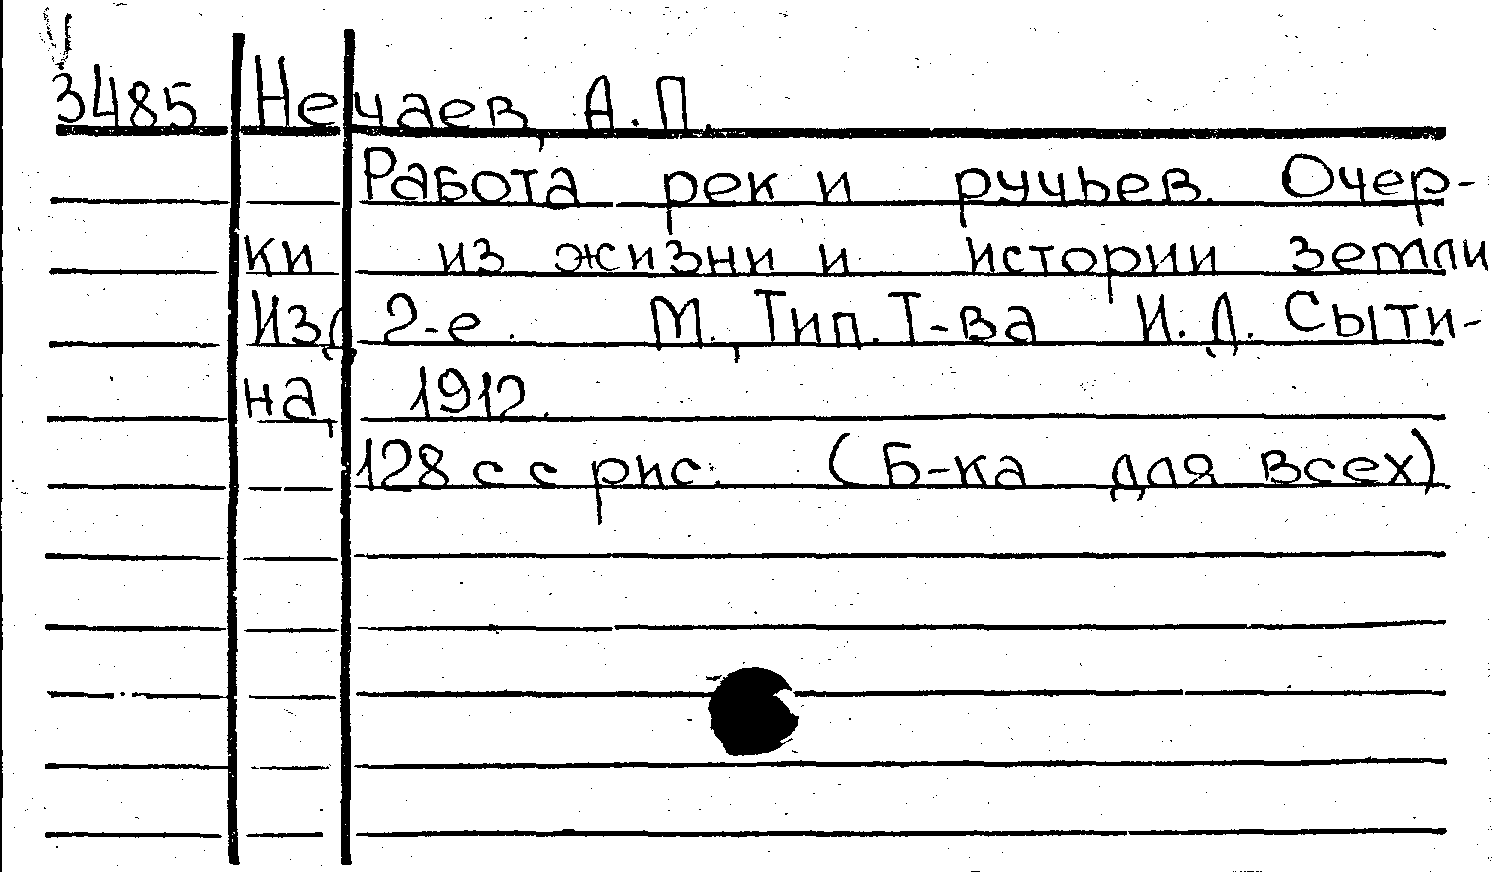 3485 Нечаев, А.П.
Работа рек и ручьев. Очер-
ки из жизни и истории земли
Изд 2-е. М., Тип. Т-ва И.Д. Сыти-
на, 1912.
128 с с рис. (Б-ка для всех)